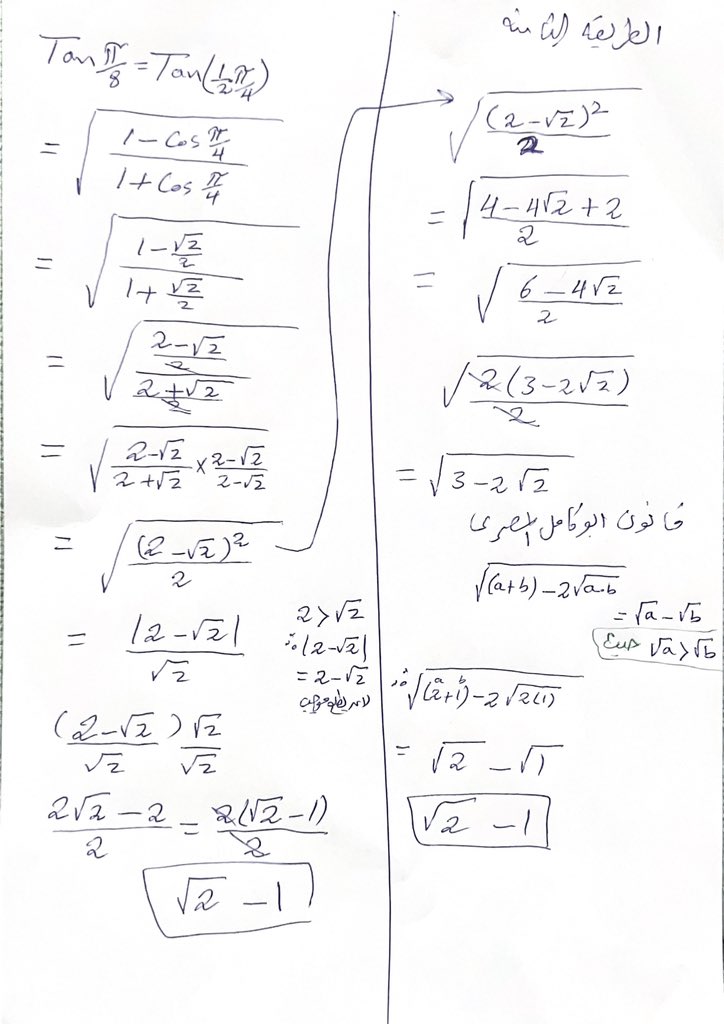 Tan π/8 = Tan(1/2 π/4)
= √((1 - Cos π/4)/(1 + Cos π/4))
= √((1 - √2/2)/(1 + √2/2))
= √(((2 - √2)/2)/((2 + √2)/2))
= √((2-√2)/(2+√2) × (2-√2)/(2-√2))
= √((2-√2)²/2)
= |2 - √2|/√2
2 > √2
∴ |2-√2|
= 2-√2
((2-√2)/√2) √2/√2
(2√2 - 2)/2 = 2(√2 - 1)/2
√2 - 1
الطريقة الثانية
√((2-√2)²/2)
= √((4 - 4√2 + 2)/2)
= √((6 - 4√2)/2)
√(2(3 - 2√2)/2)
= √(3 - 2√2)
قانون ابوكامل المصرى
√((a+b) - 2√(a·b))
= √a - √b
حيث √a > √b
a b
∴ √((2+1) - 2√(2(1)))
= √2 - √1
√2 - 1